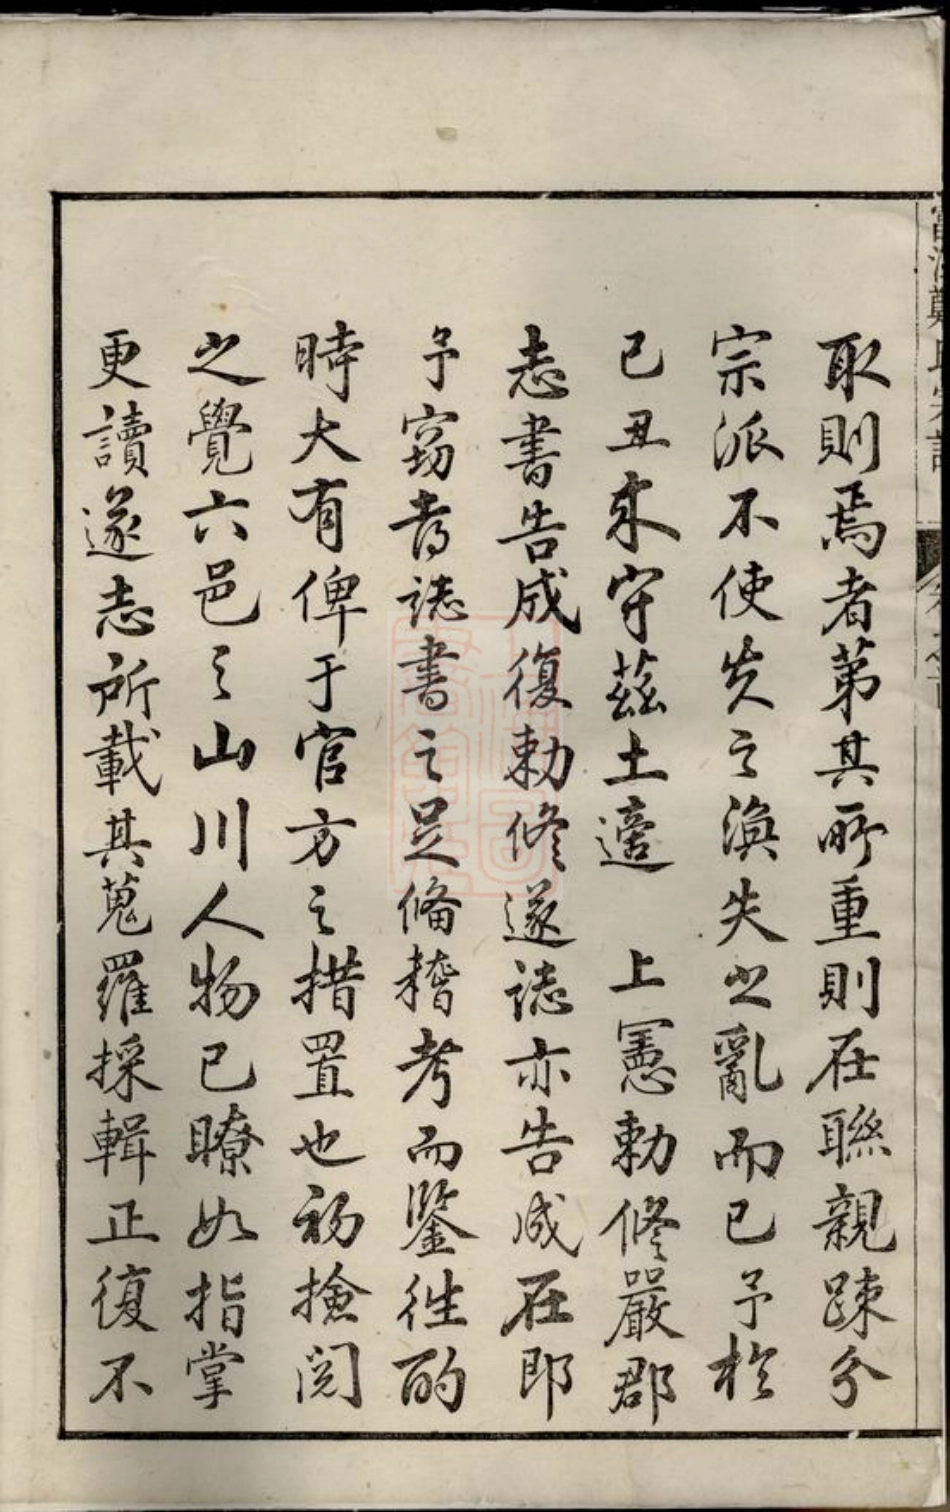 取則焉者第其所重則在聯親疎分
宗派不使失之渙失之亂而已予於
已丑來守茲土適 上憲勅修嚴郡
志書告成復勅修遂誌亦告成在即
予竊喜誌書之足備稽考而鑒徃酌
時大有俾于官方之措置也初撿閱
之覺六邑之山川人物已瞭如指掌
更讀遂志所載其蒐羅採輯正復不